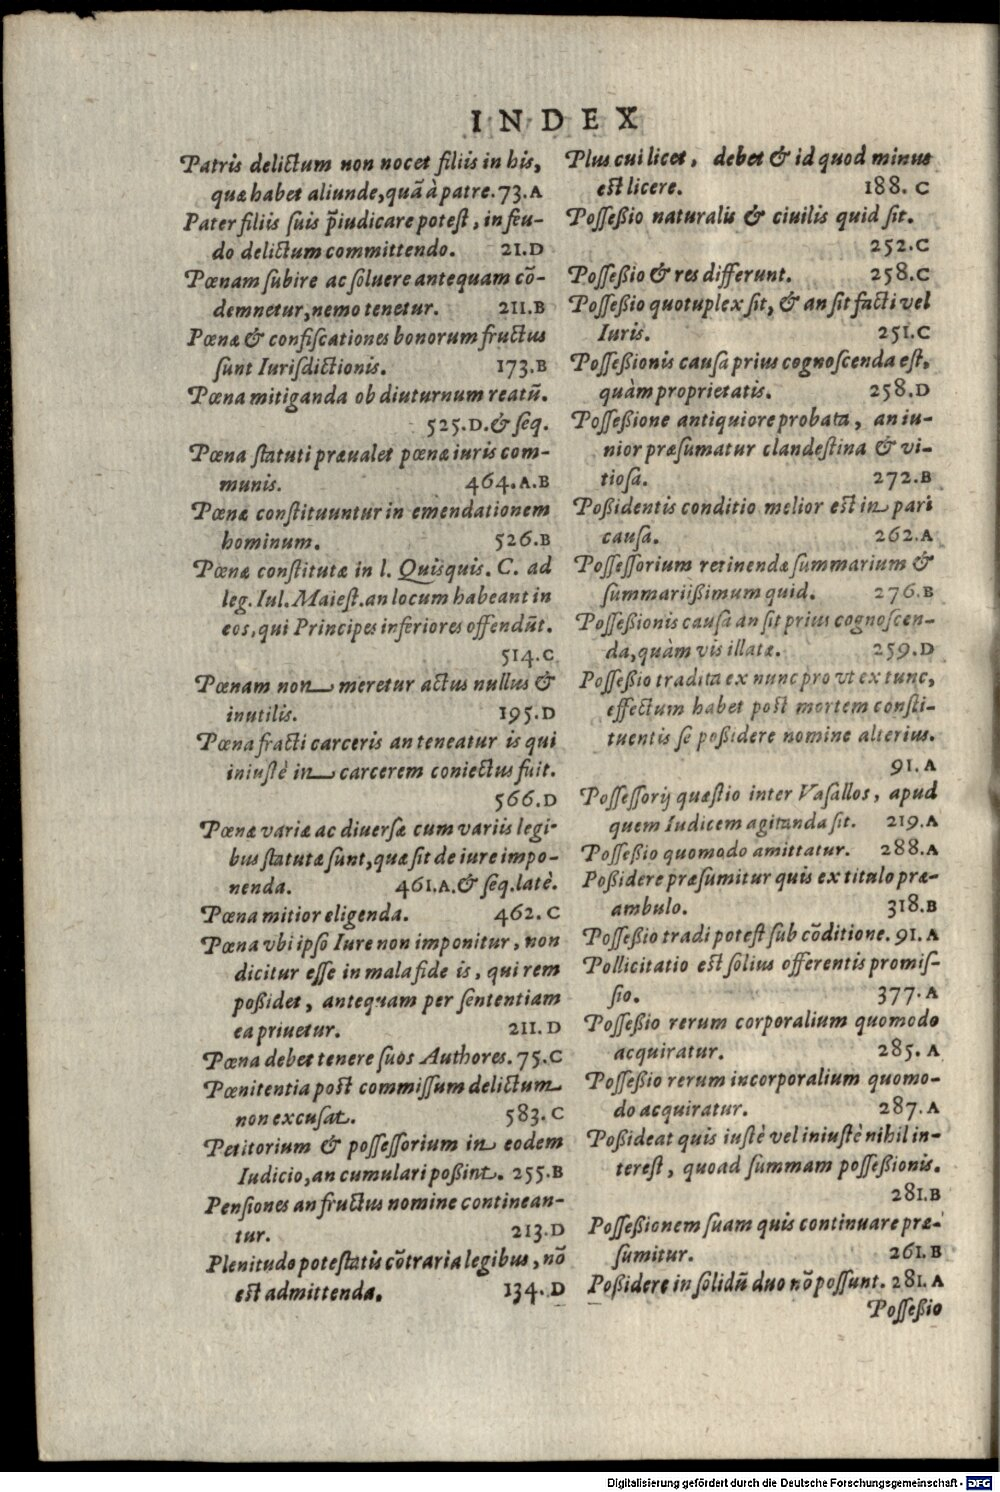 INDEX
Patris delictum non nocet filiis in his,
quæ habet aliunde, quã à patre. 73.A
Pater filiis suis p̃iudicare potest, in feu-
do delictum committendo. 21.D
Pœnam subire ac soluere antequam cõ-
demnetur, nemo tenetur. 211.B
Pœnæ & confiscationes bonorum fructus
sunt Iurisdictionis. 173.B
Pœna mitiganda ob diuturnum reatũ.
525.D. & seq.
Pœna statuti præualet pœnæ iuris com-
munis. 464.A.B
Pœnæ constituuntur in emendationem
hominum. 526.B
Pœnæ constitutæ in l. Quisquis. C. ad
leg. Iul. Maiest. an locum habeant in
eos, qui Principes inferiores offendũt.
514.C
Pœnam non meretur actus nullus &
inutilis. 195.D
Pœna fracti carceris an teneatur is qui
iniustè in carcerem coniectus fuit.
566.D
Pœnæ variæ ac diuersæ cum variis legi-
bus statutæ sunt, quæ sit de iure impo-
nenda. 461.A. & seq. latè.
Pœna mitior eligenda. 462.C
Pœna vbi ipso Iure non imponitur, non
dicitur esse in mala fide is, qui rem
poßidet, antequam per sententiam
ea priuetur. 211.D
Pœna debet tenere suos Authores. 75.C
Pœnitentia post commissum delictum
non excusat. 583.C
Petitorium & possessorium in eodem
Iudicio, an cumulari poßint. 255.B
Pensiones an fructus nomine continean-
tur. 213.D
Plenitudo potestatis cõtraria legibus, nõ
est admittenda. 134.D
Plus cui licet, debet & id quod minus
est licere. 188.C
Posseßio naturalis & ciuilis quid sit.
252.C
Posseßio & res differunt. 258.C
Posseßio quotuplex sit, & an sit facti vel
Iuris. 251.C
Posseßionis causa prius cognoscenda est,
quàm proprietatis. 258.D
Posseßione antiquiore probata, an iu-
nior præsumatur clandestina & vi-
tiosa. 272.B
Poßidentis conditio melior est in pari
causa. 262.A
Possessorium retinendæ summarium &
summariißimum quid. 276.B
Posseßionis causa an sit prius cognoscen-
da, quàm vis illatæ. 259.D
Posseßio tradita ex nunc pro vt ex tunc,
effectum habet post mortem consti-
tuentis se poßidere nomine alterius.
91.A
Possessorij quæstio inter Vasallos, apud
quem Iudicem agitanda sit. 219.A
Posseßio quomodo amittatur. 288.A
Poßidere præsumitur quis ex titulo præ-
ambulo. 318.B
Posseßio tradi potest sub cõditione. 91.A
Pollicitatio est solius offerentis promis-
sio. 377.A
Posseßio rerum corporalium quomodo
acquiratur. 285.A
Posseßio rerum incorporalium quomo-
do acquiratur. 287.A
Poßideat quis iustè vel iniustè nihil in-
terest, quoad summam posseßionis.
281.B
Posseßionem suam quis continuare præ-
sumitur. 261.B
Poßidere in solidũ duo nõ possunt. 281.A
Posseßio
Digitalisierung gefördert durch die Deutsche Forschungsgemeinschaft - DFG